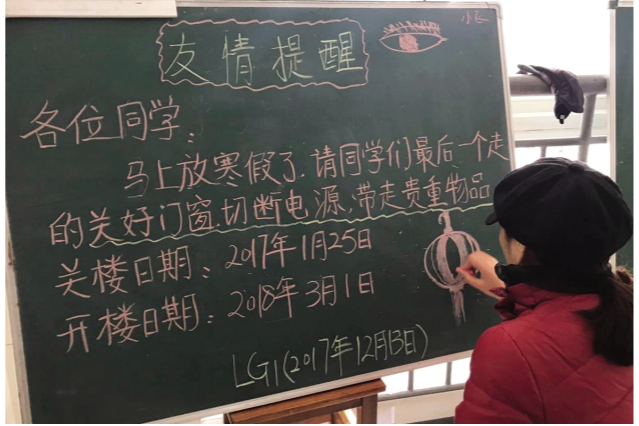 友情提醒
各位同学：
马上放寒假了.请同学们最后一个走
的关好门窗.切断电源,带走贵重物品
关楼日期：2017年1月25日
开楼日期：2018年3月1日
LG1(2017年12月13日)